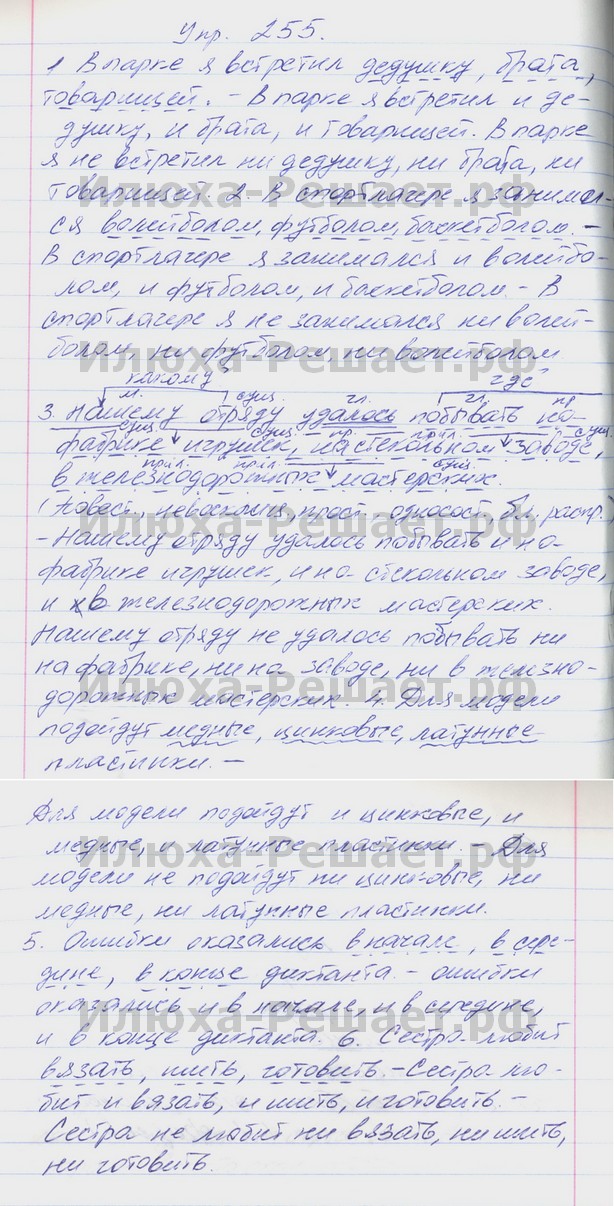 Упр. 255.
1 В парке я встретил дедушку, брата,
товарищей. – В парке я встретил и де-
душку, и брата, и товарищей. В парке
я не встретил ни дедушку, ни брата, ни
товарищей. 2. В спортлагере я занимал-
ся волейболом, футболом, баскетболом. –
В спортлагере я занимался и волейбо-
лом, и футболом, и баскетболом – В
спортлагере я не занимался ни волей-
болом, ни футболом, ни волейболом
какому? где?
м. сущ. гл. гл. пр
3. Нашему отряду удалось побывать на
сущ. сущ. пр. прил. сущ.
фабрике игрушек, на стекольном заводе,
прил. прил. сущ.
в железнодорожных мастерских.
(Повест., невосклиц, прост., односост, распр.)
– Нашему отряду удалось побывать и на
фабрике игрушек, и на стекольном заводе,
и в железнодорожных мастерских.
Нашему отряду не удалось побывать ни
на фабрике, ни на заводе, ни в железно-
дорожных мастерских. 4. Для модели
подойдут медные, цинковые, латунные
пластинки. –
Для модели подойдут и цинковые, и
медные, и латунные пластинки. – Для
модели не подойдут ни цинковые, ни
медные, ни латунные пластинки.
5. Ошибки оказались в начале, в сере-
дине, в конце диктанта. – ошибки
оказались и в начале, и в середине,
и в конце диктанта. 6. Сестра любит
вязать, шить, готовить. – Сестра лю-
бит и вязать, и шить, и готовить. –
Сестра не любит ни вязать, ни шить,
ни готовить.
Илюха-Решает.рф
Илюха-Решает.рф
Илюха-Решает.рф
Илюха-Решает.рф
Илюха-Решает.рф
Илюха-Решает.рф
Илюха-Решает.рф